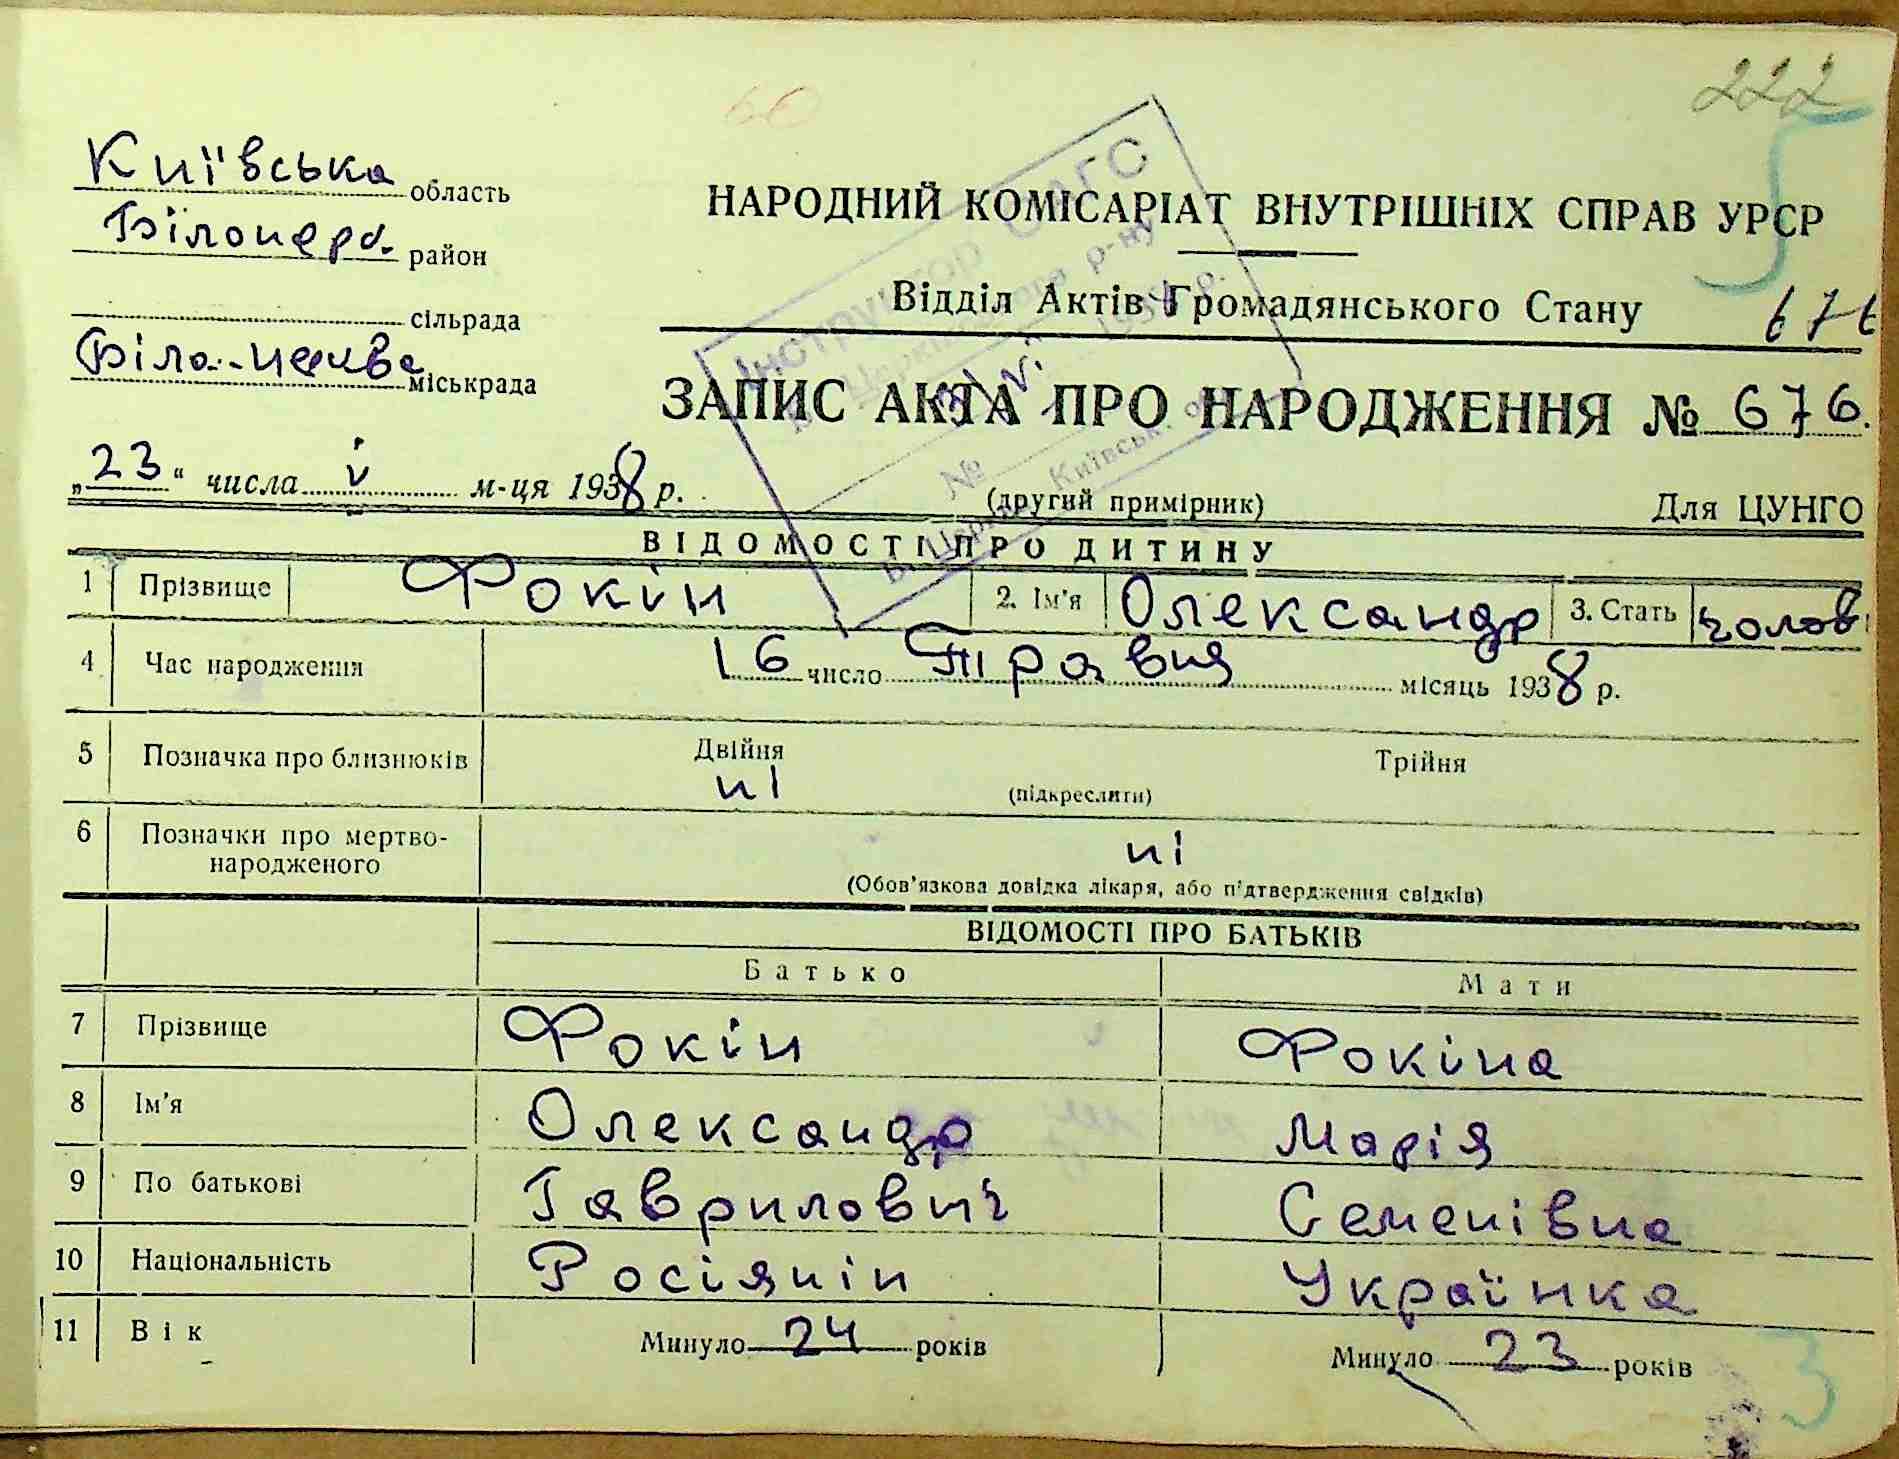 222
60
Київська область
Білоцерк. район
сільрада
Біло-церква міськрада
НАРОДНИЙ КОМІСАРІАТ ВНУТРІШНІХ СПРАВ УРСР
Відділ Актів Громадянського Стану
676
ЗАПИС АКТА ПРО НАРОДЖЕННЯ № 676.
„23“ числа V м-ця 1938 р.
(другий примірник)
Для ЦУНГО
Інструктор ЗАГС
р-ну
№
Київськ. обл.
ВІДОМОСТІ ПРО ДИТИНУ
1 Прізвище Фокін 2. Ім'я Олександр 3. Стать чолов
4 Час народження 16 число Травня місяць 1938 р.
5 Позначка про близнюків Двійня Трійня
ні (підкреслити)
6 Позначки про мертво-
народженого
ні
(Обов'язкова довідка лікаря, або підтвердження свідків)
ВІДОМОСТІ ПРО БАТЬКІВ
Батько Мати
7 Прізвище Фокін Фокіна
8 Ім'я Олександр Марія
9 По батькові Гаврилович Семенівна
10 Національність Росіянін Українка
11 Вік Минуло 24 років Минуло 23 років
3